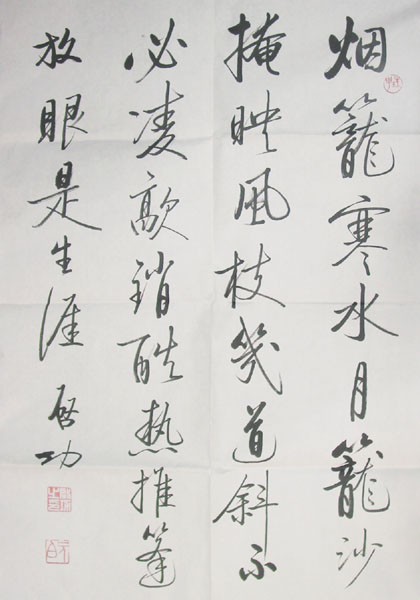 烟籠寒水月籠沙
掩映風枝幾道斜不
必凌歊銷酷热推篷
放眼是生涯 啓功